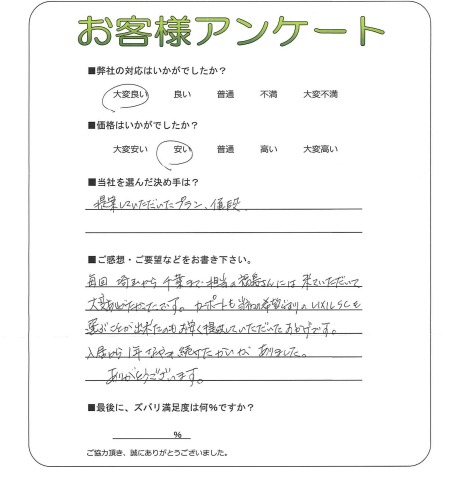 お客様アンケート
■弊社の対応はいかがでしたか？
大変良い 良い 普通 不満 大変不満
■価格はいかがでしたか？
大変安い 安い 普通 高い 大変高い
■当社を選んだ決め手は？
提案していただいたプラン、値段
■ご感想・ご要望などをお書き下さい。
毎回 埼玉から 千葉まで 担当の 福島さんには 来ていただいて
大変ありがたかったです。カーポートも 当初の希望通りの LIXIL SCを
選ぶことが出来たのもお安く提案していただいたおかげです。
入居から1年 なやみ続けたかいが ありました。
ありがとうございます。
■最後に、ズバリ満足度は何％ですか？
％
ご協力頂き、誠にありがとうございました。